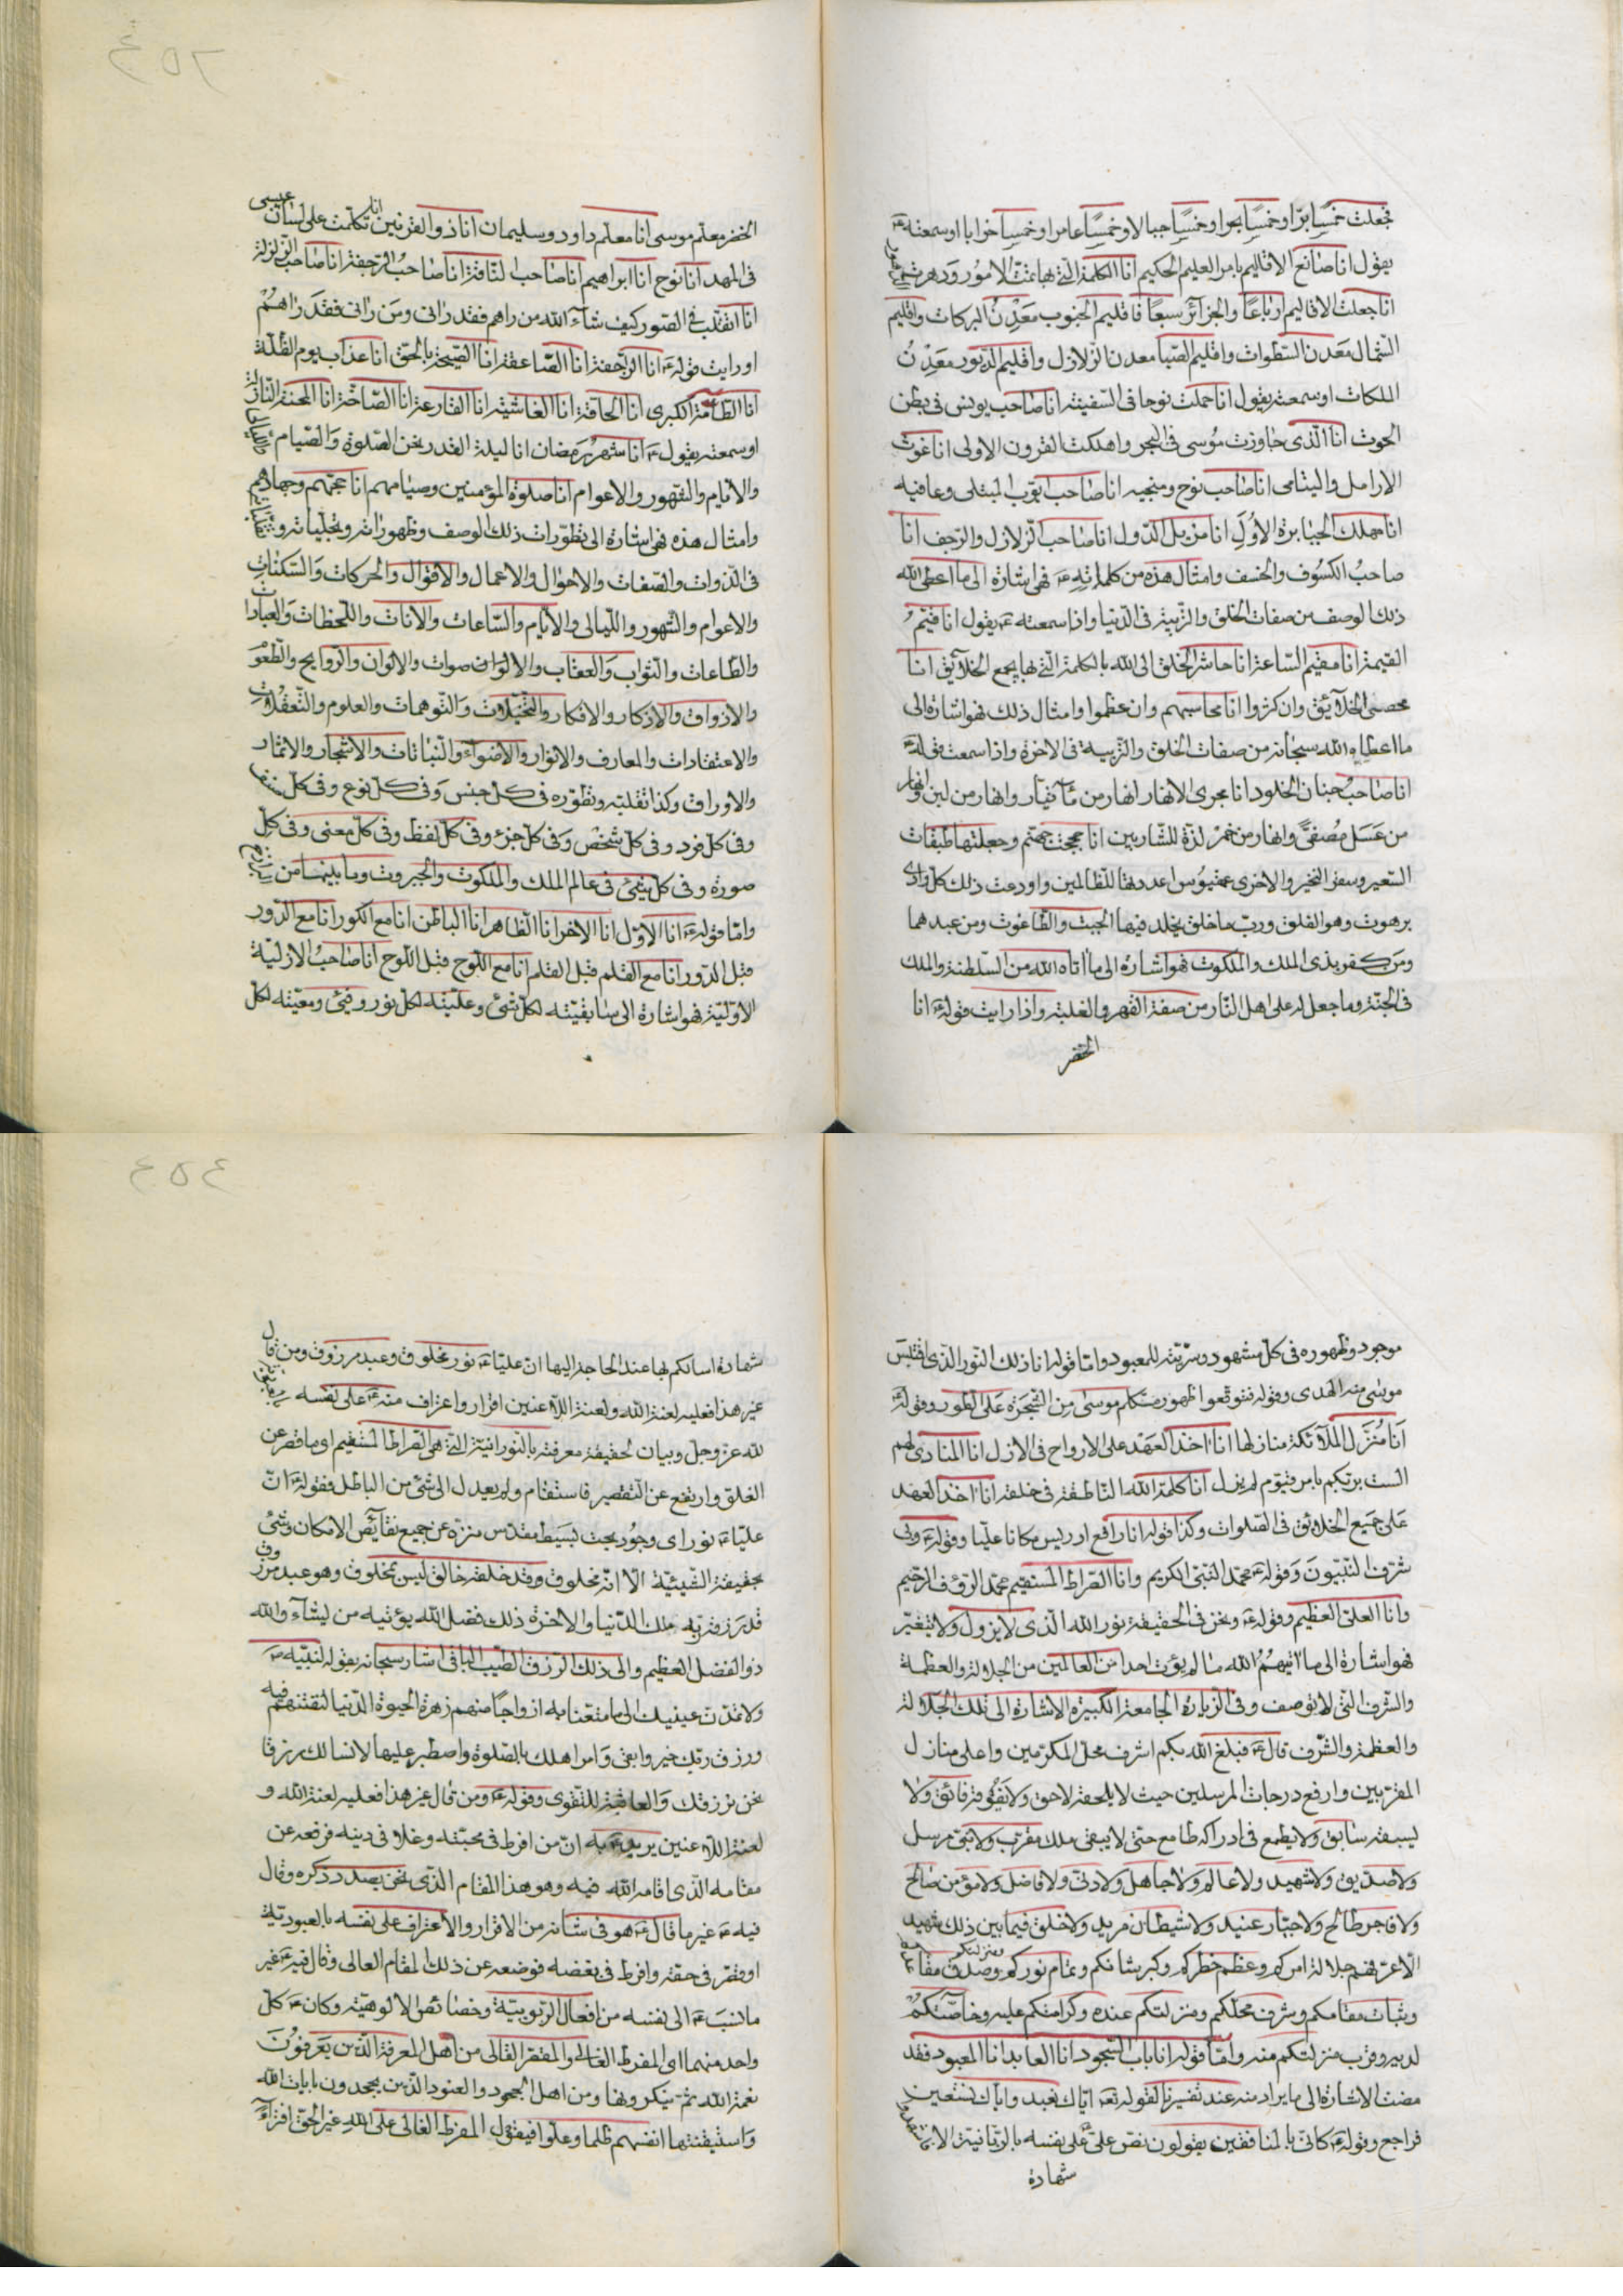 فجعلت خمسا برّا وخمسا بحرا وخمسا جبالا وخمسا عامرا وخمسا خرابا او سمعته ع
يقول انا صانع الاقاليم بامر العليم الحكيم انا الكلمة التي بها تمت الامور ودهرت الدهور
انا جعلت الاقاليم ارباعا والجزائر سبعا فاقليم الجنوب معدن البركات واقليم
الشمال معدن السطوات واقليم الصبا معدن الزلازل واقليم الدبور معدن
الهلكات او سمعته يقول انا حملت نوحا فى السفينة انا صاحب يونس فى بطن
الحوت انا الذى جاوزت موسى فى البحر واهلكت القرون الاولى انا غوث
الارامل واليتامى انا صاحب نوح ومنجيه انا صاحب ايوب المبتلى وعافيه
انا مهلك الجبابرة الاول انا مزيل الدول انا صاحب الزلازل والرجف انا
صاحب الكسوف والخسف وامثال هذه من كلماته ع فهى اشارة الى ما اعطى الله
ذلك الوصف من صفات الخلق والتربية فى الدنيا واذا سمعته ع يقول انا قيم
القيمة انا مقيم الساعة انا حاشر الخلق الى الله بالكلمة التى بها يجمع الخلائق انا
محصى الخلائق وان كثروا انا محاسبهم وان عظموا وامثال ذلك فهو اشارة الى
ما اعطاه الله سبحانه من صفات الخلق والتربية فى الاخرة واذا سمعت قوله ع
انا صاحب جنان الخلود انا مجرى الانهار انهار من ماء تيار وانهار من لبن وانهار
من عسل مصفى وانهار من خمر لذة للشاربين انا حججت جهنم وجعلتها طبقات
السعير وسقر النخير والاخرى عمقيوس اعددتها للظالمين واودعت ذلك كل وادى
برهوت وهو الفلق ورب ما خلق يخلد فيها الجبت والطاغوت ومن عبدهما
ومن كفر بذى الملك والملكوت فهو اشارة الى ما اتاه الله من السلطنة والملك
فى الجنة وما جعل له على اهل النار من صفة القهر والغلبة واذا رايت قوله ع انا
الخضر
٤٥٢
الخضر معلم موسى انا معلم داود وسليمان انا ذو القرنين انا تكلمت على لسان عيسى
فى المهد انا نوح انا ابراهيم انا صاحب الناقة انا صاحب الرجفة انا صاحب الزلزلة
انا اتقلب فى الصور كيف شاء الله من راهم فقد رانى ومن رانى فقد راهم
او رايت قوله ع انا الرجفة انا الصاعقة انا الصيحة بالحق انا عذاب يوم الظلة
انا الطامة الكبرى انا الحاقة انا الغاشية انا القارعة انا الصاخة انا المحنة النازلة
او سمعته يقول ع انا شهر رمضان انا ليلة القدر نحن الصلوة والصيام والليالى
والايام والشهور والاعوام انا صلوة المؤمنين وصيامهم انا حجهم وجهادهم
وامثال هذه فهى اشارة الى تطورات ذلك الوصف وظهوراته وتجلياته
فى الذوات والصفات والاحوال والاعمال والاقوال والحركات والسكنات
والاعوام والشهور والليالى والايام والساعات والانات واللحظات والعبادات
والطاعات والثواب والعقاب والالوان صوات والالوان والروايح والطعوم
والاذواق والاذكار والافكار والتخيلات والتوهمات والعلوم والتعقلات
والاعتقادات والمعارف والانوار والاضواء والنباتات والاشجار والاثمار
والاوراق وكذا تقلبه وتطوره فى كل جنس وفى كل نوع وفى كل صنف
وفى كل فرد وفى كل شخص وفى كل جزء وفى كل لفظ وفى كل معنى وفى كل
صورة وفى كل شئ فى عالم الملك والملكوت والجبروت وما بينهما من
واما قوله ع انا الاول انا الاخر انا الظاهر انا الباطن انا مع الكور انا مع الدور
قبل الدور انا مع القلم قبل القلم انا مع اللوح قبل اللوح انا صاحب الازلية
الاولية فهو اشارة الى سابقيته لكل شئ وعليته لكل نور وفيئ ومعيته لكل
موجود وظهوره فى كل مشهود وسريته للمعبود واما قوله انا ذلك النور الذى اقتبس
موسى منه الهدى وقوله فتوقعوا ظهور متكلم موسى من الشجرة على الطور وقوله ع
انا منزل الملائكة منازلها انا اخذ العهد على الارواح فى الازل انا المنادى لهم
الست بربكم بامر قيوم لم يزل انا كلمة الله الناطقة فى خلقه انا اخذ العهد
على جميع الخلائق فى الصلوات وكذا قوله انا رافع ادريس مكانا عليا وقوله ع وبى
شرف النبيون وقوله ع محمد النبى الكريم وانا الصراط المستقيم محمد الرؤف الرحيم
وانا العلى العظيم وقوله ع ونحن فى الحقيقة نور الله الذى لا يزول ولا يتغير
فهو اشارة الى ما اتيهم الله ما لم يؤت احدا من العالمين من الجلالة والعظمة
والشرف التى لا توصف وفى الزيارة الجامعة الكبيرة الاشارة الى تلك الجلالة
والعظمة والشرف قال ع فبلغ الله بكم اشرف محل المكرمين واعلى منازل
المقربين وارفع درجات المرسلين حيث لا يلحقه لاحق ولا يفوقه فائق ولا
يسبقه سابق ولا يطمع فى ادراكه طامع حتى لا يبقى ملك مقرب ولا نبى مرسل
ولا صديق ولا شهيد ولا عالم ولا جاهل ولا دنى ولا فاضل ولا مؤمن صالح
ولا فاجر طالح ولا جبار عنيد ولا شيطان مريد ولا خلق فيما بين ذلك شهيد
الا عرفهم جلالة امركم وعظم خطركم وكبر شانكم وتمام نوركم وصدق مقاعدكم
وثبات مقامكم وشرف محلكم ومنزلتكم عنده وكرامتكم عليه وخاصتكم
لديه وقرب منزلتكم منه واما قوله انا باب السجود انا العابد انا المعبود فقد
مضت الاشارة الى ما يراد منه عند تفسيرنا لقوله تعه اياك نعبد واياك نستعين
فراجع وقوله ع كانى بالمنافقين يقولون نص على ع على نفسه بالربانية الا فاشهدوا
شهادة
٤٥٤
شهادة اسالكم بها عند الحاجة اليها ان عليا ع نور مخلوق وعبد مرزوق ومن قال
غير هذا فعليه لعنة الله ولعنة اللاعنين اقرار واعتراف منه ع على نفسه
لله عز وجل وبيان لحقيقة معرفته بالنورانية التى هى الصراط المستقيم اى ما قصر عن
الغلق وارتفع عن التقصير فاستقام ولم يعدل الى شئ من الباطل فقوله ع ان
عليا ع نور اى وجود بحت بسيط مقدس منزه عن جميع نقائص الامكان وشئ
بحقيقة الشيئية الا انه مخلوق وقد خلقه خالق ليس بمخلوق وهو عبد مرزوق
قد رزقه ربه ملك الدنيا والاخرة ذلك فضل الله يؤتيه من يشاء والله
ذو الفضل العظيم والى ذلك الرزق الطيب الباقى اشار سبحانه بقوله لنبيه ص
ولا تمدن عينيك الى ما متعنا به ازواجا منهم زهرة الحيوة الدنيا لنفتنهم فيه
ورزق ربك خير وابقى وامر اهلك بالصلوة واصطبر عليها لا نسالك رزقا
نحن نرزقك والعاقبة للتقوى وقوله ع ومن قال غير هذا فعليه لعنة الله و
لعنة اللاعنين يريد ع به ان من افرط فى محبته وغلا فى دينه فرفعه عن
مقامه الذى اقامه الله فيه وهو هذا المقام الذى نحن بصدد ذكره وقال
فيه ع غير ما قال ع هو فى شانه من الاقرار والاعتراف على نفسه بالعبودية
او قصر فى حقه وافرط فى بغضه فوضعه عن ذلك المقام العالى وقال فيه ع غير
ما نسب ع الى نفسه من افعال الربوبية وخصائص الالوهية وكان ع كل
واحد منهما اى المفرط الغالى والمقصر القالى من اهل المعرفة الذين يعرفون
نعمة الله ثم ينكرونها ومن اهل الجحود والعنود الذين يجحدون بايات الله
واستيقنتها انفسهم ظلما وعلوا فيقول المفرط الغالى على الله غير الحق افتراء